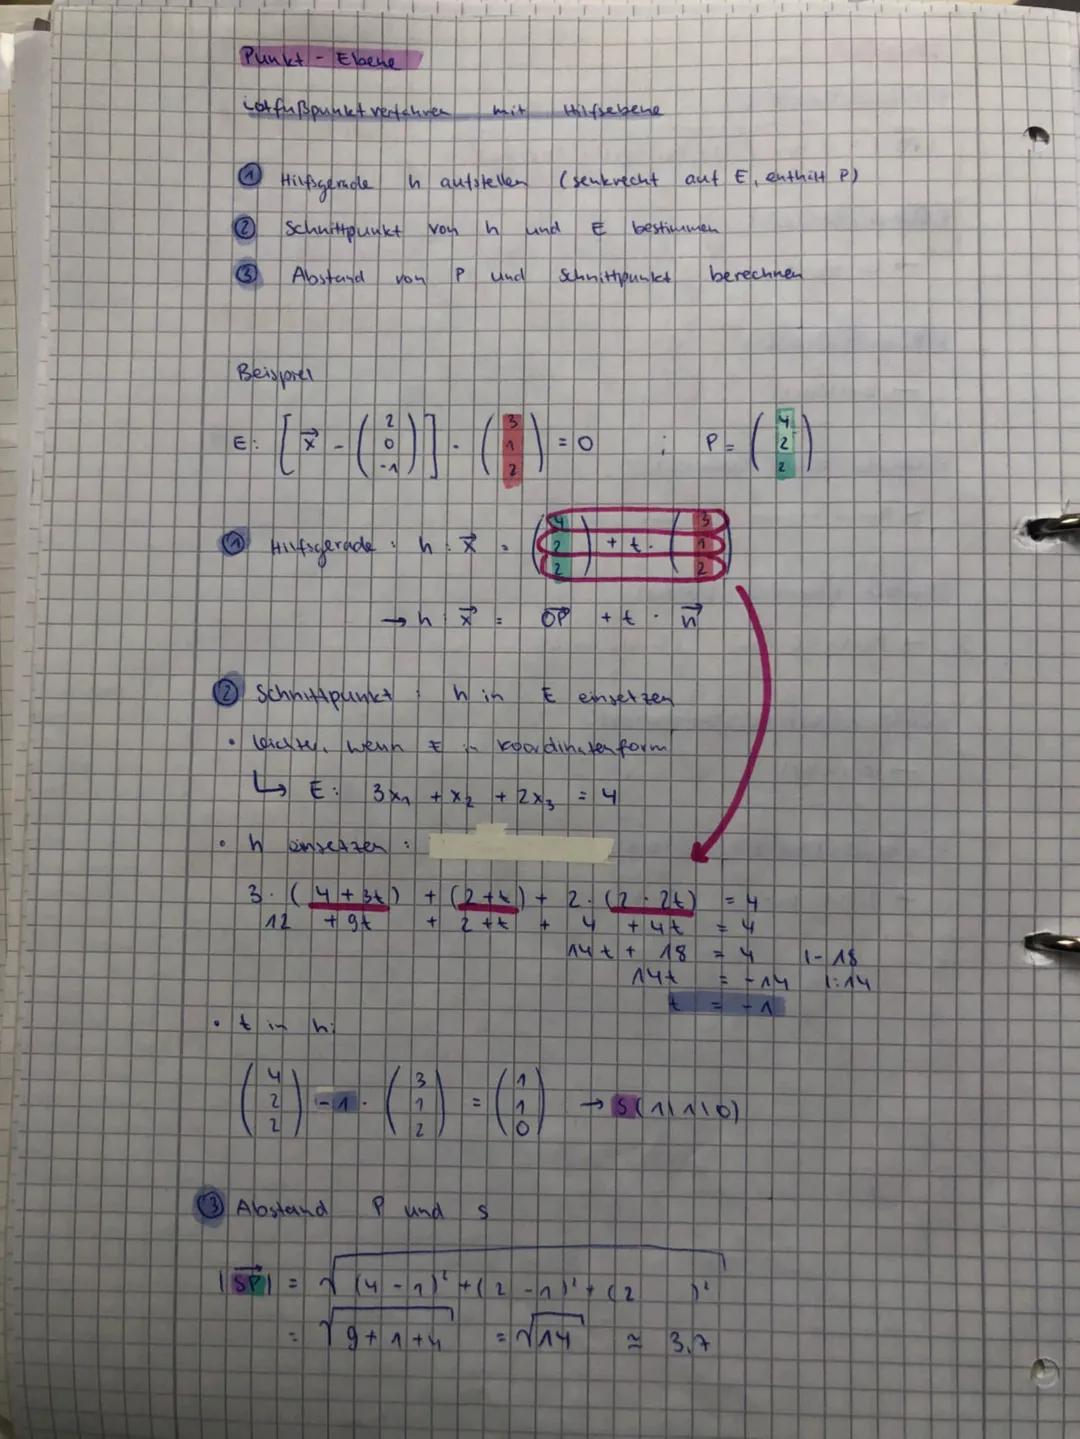 Punkt - Ebene
Lotfußpunktverfahren mit Hilfsebene
① Hilfsgerade h aufstellen (senkrecht auf E, enthält P)
② Schnittpunkt von h und E bestimmen
③ Abstand von P und Schnittpunkt berechnen
Beispiel
E: [x⃗ - (2 0 -1)] · (3 1 2) = 0 ; P = (4 2 2)
① Hilfsgerade : h : x⃗ = (4 2 2) + t · (3 1 2)
→ h : x⃗ = OP⃗ + t · n⃗
② Schnittpunkt : h in E einsetzen
• leichter, wenn E in Koordinatenform
↳ E: 3x₁ + x₂ + 2x₃ = 4
• h einsetzen :
3 · (4 + 3t) + (2 + t) + 2 · (2 · 2t) = 4
12 + 9t + 2 + t + 4 + 4t = 4
14t + 18 = 4 |- 18
14t = -14 |: 14
t = -1
• t in h:
(4 2 2) - 1 · (3 1 2) = (1 1 0) → S(1|1|0)
③ Abstand P und S
|SP⃗| = √(4 - 1)² + (2 - 1)² + (2 )²
= √9 + 1 + 4 = √14 ≈ 3,7